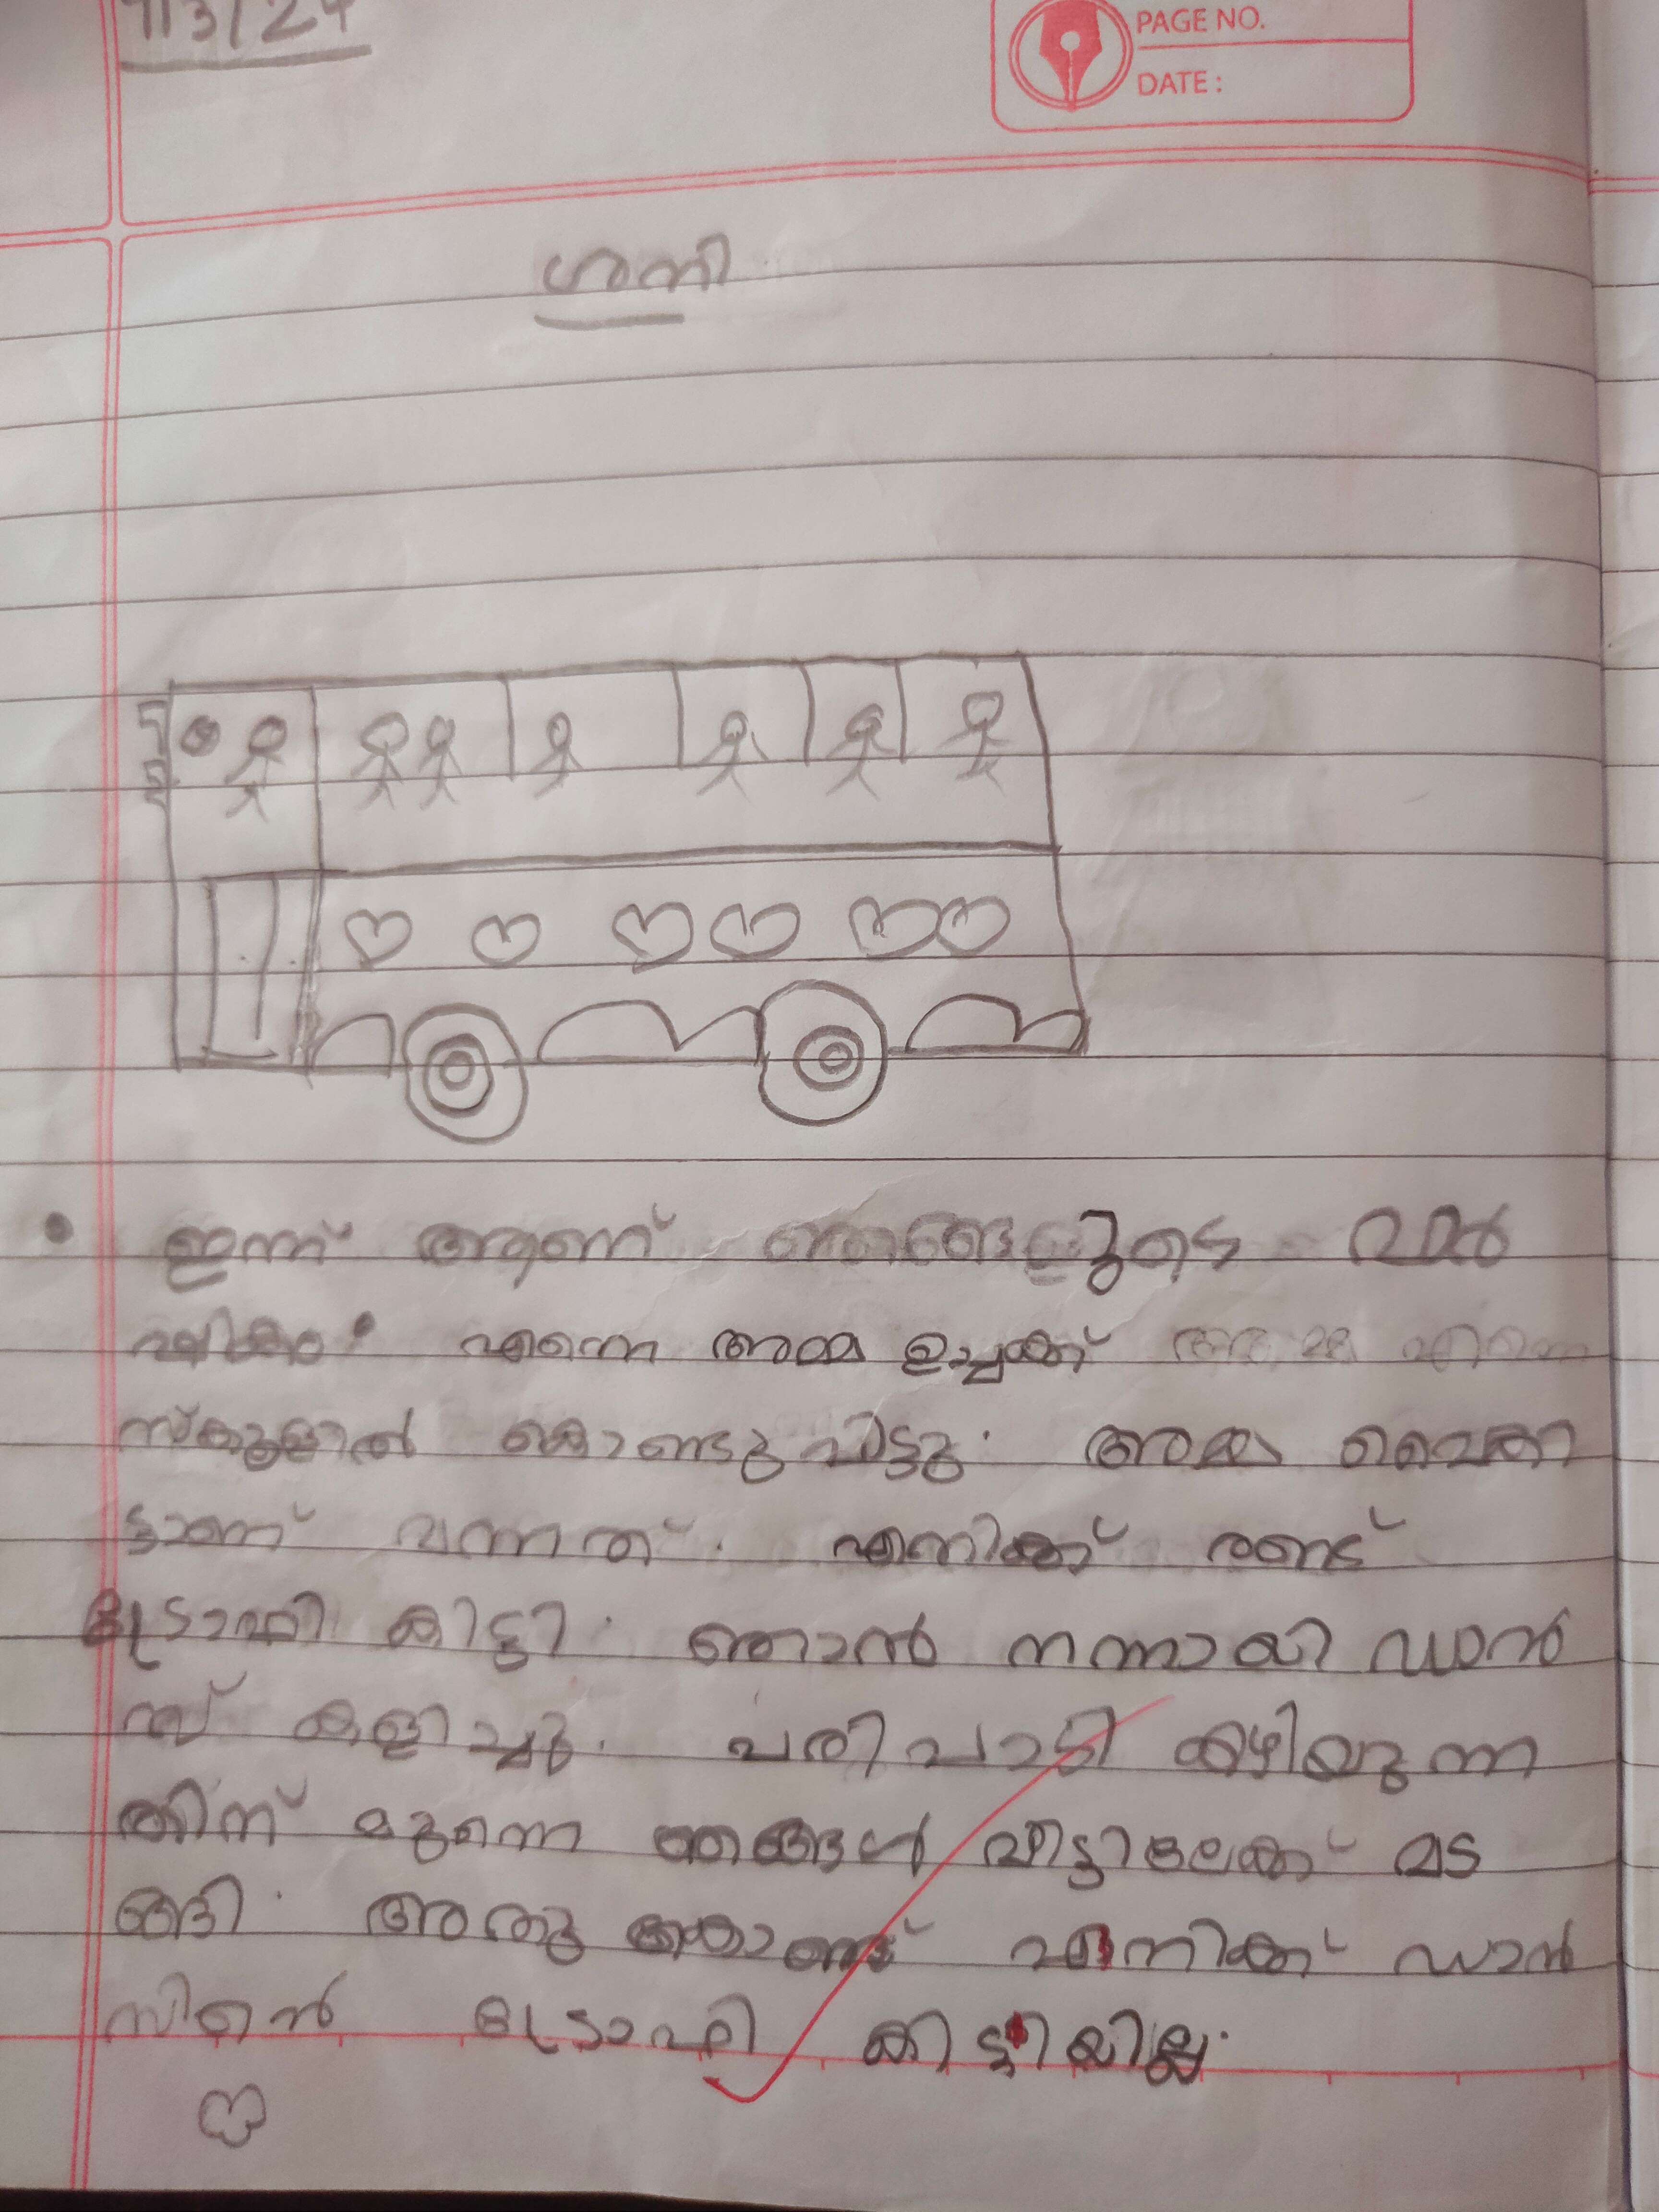 PAGE NO.
DATE :
ശനി
ഇന്ന് ആണ് ഞങ്ങളുടെ വാർ
ഷികം. എന്നെ അമ്മ ഉച്ചക്ക് അമ്മ എന്നെ
സ്കൂളിൽ കൊണ്ടുവിട്ടു. അമ്മ വൈകി
ട്ടാണ് വന്നത്. എനിക്ക് രണ്ട്
ട്രോഫി കിട്ടി. ഞാൻ നന്നായി ഡാൻ
സ് കളിച്ചു. പരിപാടി കഴിയുന്ന
തിന് മുന്നെ ഞങ്ങൾ വീട്ടിലേക്ക് മട
ങ്ങി. അതുകൊണ്ട് എനിക്ക് ഡാൻ
സിനെൻ ട്രോഫി കിട്ടിയില്ല.